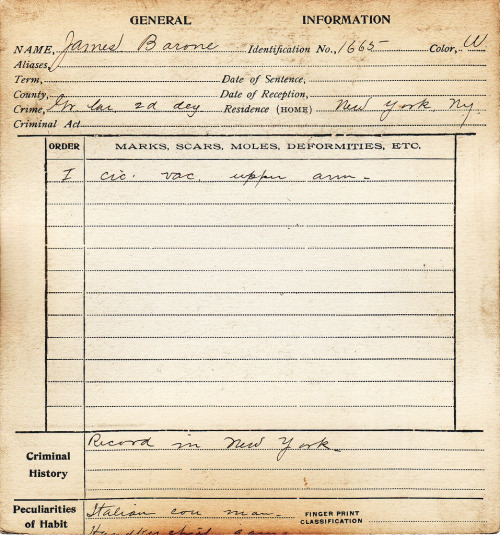 GENERAL INFORMATION
NAME, James Barone Identification No., 1665 Color, W
Aliases,
Term, Date of Sentence,
County, Date of Reception,
Crime, Gr. lar. 2d deg Residence (HOME) New York, Ny.
Criminal Act
ORDER MARKS, SCARS, MOLES, DEFORMITIES, ETC.
I cic. vac. upper arm-
Criminal History
Record in New York-
Peculiarities of Habit
Italian con man- FINGER PRINT CLASSIFICATION
Handkerchief game